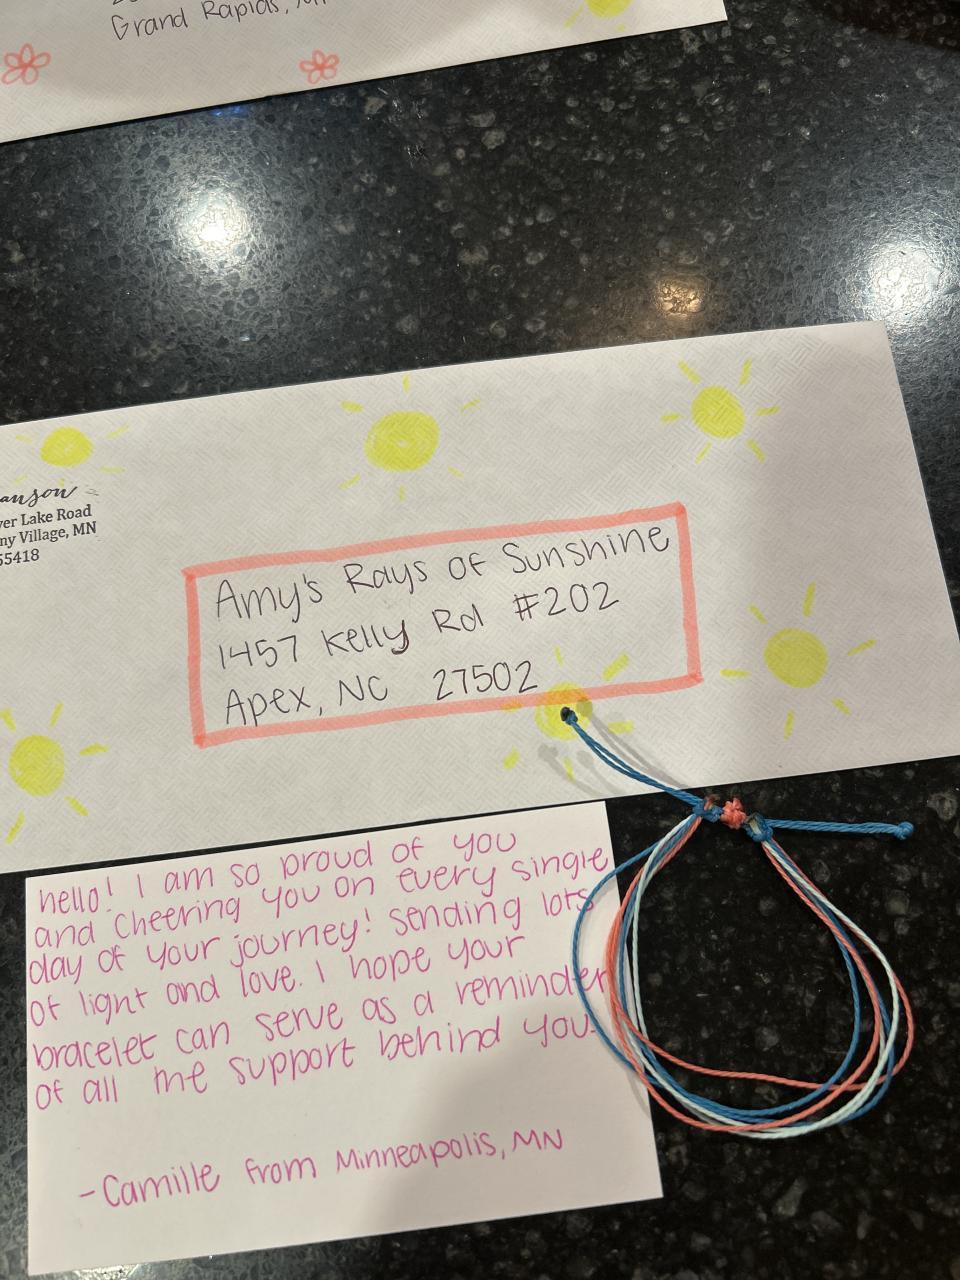 Grand Rapids, MN
anson
ver Lake Road
ny Village, MN
55418
Amy's Rays Of Sunshine
1457 Kelly Rd #202
Apex, NC 27502
hello! I am so proud of you
and cheering you on every single
day of your journey! sending lots
of light and love. I hope your
bracelet can serve as a reminder
of all the support behind you.
-Camille from Minneapolis, MN